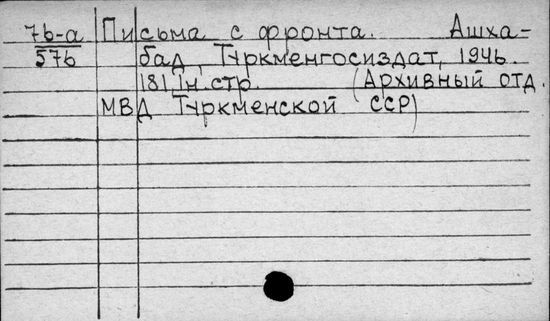 7b-a Письма с фронта. Ашха-
57b бад, Туркменгосиздат, 1946.
181 1н.стр. (Архивный отд.
МВД Туркменской ССР)